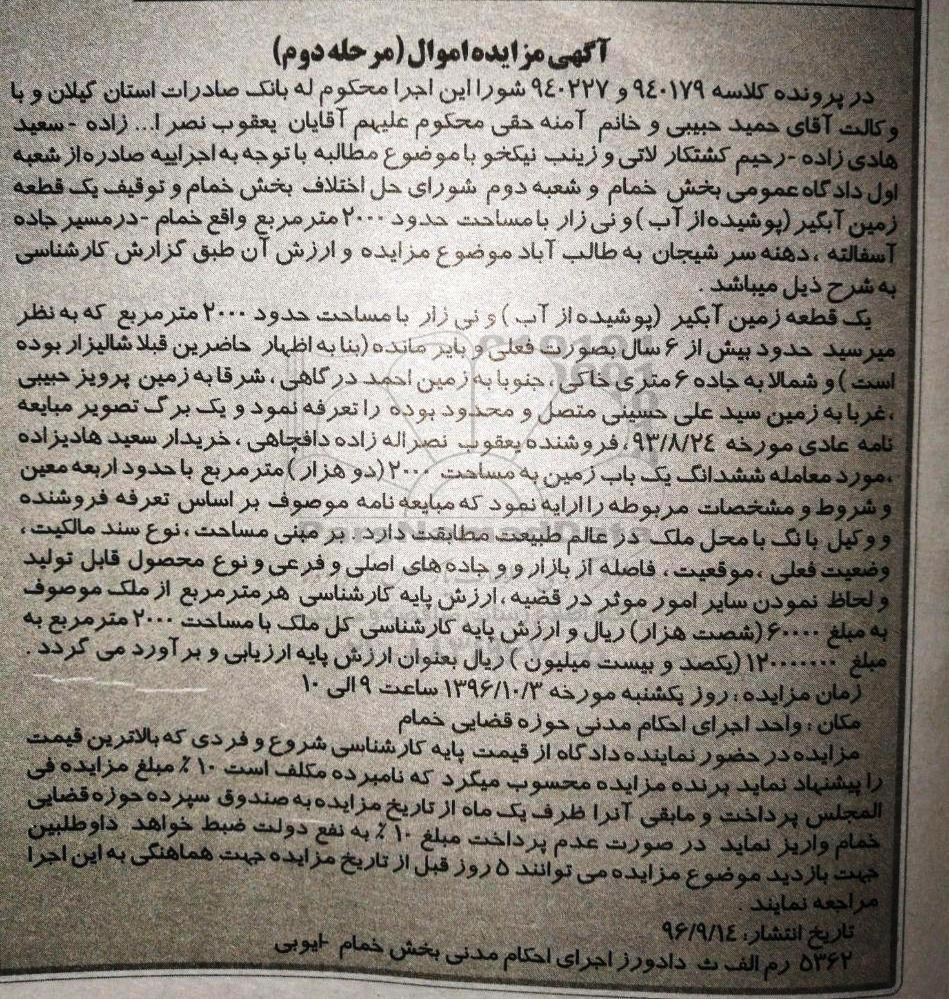 آگهی مزایده اموال (مرحله دوم)
در پرونده کلاسه ۹۴۰۱۷۹ و ۹۴۰۲۲۷ شورا این اجرا محکوم له بانک صادرات استان گیلان و با
وکالت آقای حمید حبیبی و خانم آمنه حقی محکوم علیهم آقایان یعقوب نصر ا... زاده -سعید
هادی زاده -رحیم کشتکار لاتی و زینب نیکخو با موضوع مطالبه با توجه به اجراییه صادره از شعبه
اول دادگاه عمومی بخش خمام و شعبه دوم شورای حل اختلاف بخش خمام و توقیف یک قطعه
زمین آبگیر (پوشیده از آب) و نی زار با مساحت حدود ۲۰۰۰ متر مربع واقع خمام -در مسیر جاده
آسفالته ، دهنه سر شیجان به طالب آباد موضوع مزایده و ارزش آن طبق گزارش کارشناسی
به شرح ذیل میباشد .
یک قطعه زمین آبگیر (پوشیده از آب ) و نی زار با مساحت حدود ۲۰۰۰ متر مربع که به نظر
میرسید حدود بیش از ۶ سال بصورت فعلی و بایر مانده (بنا به اظهار حاضرین قبلا شالیزار بوده
است ) و شمالا به جاده ۶ متری خاکی ، جنوبا به زمین احمد درگاهی ، شرقا به زمین پرویز حبیبی
،غربا به زمین سید علی حسینی متصل و محدود بوده را تعرفه نمود و یک برگ تصویر مبایعه
نامه عادی مورخه ۹۳/۸/۲۴، فروشنده یعقوب نصراله زاده دافچاهی ، خریدار سعید هادیزاده
،مورد معامله ششدانگ یک باب زمین به مساحت ۲۰۰۰ (دو هزار ) متر مربع با حدود اربعه معین
و شروط و مشخصات مربوطه را ارایه نمود که مبایعه نامه موصوف بر اساس تعرفه فروشنده
و وکیل بانگ با محل ملک در عالم طبیعت مطابقت دارد، بر مبنی مساحت ، نوع سند مالکیت ،
وضعیت فعلی ،موقعیت ، فاصله از بازار و و جاده های اصلی و فرعی و نوع محصول قابل تولید
و لحاظ نمودن سایر امور موثر در قضیه ، ارزش پایه کارشناسی هر متر مربع از ملک موصوف
به مبلغ ۶۰۰۰۰ (شصت هزار) ریال و ارزش پایه کارشناسی کل ملک با مساحت ۲۰۰۰ متر مربع به
مبلغ ۱۲۰۰۰۰۰۰۰ (یکصد و بیست میلیون ) ریال بعنوان ارزش پایه ارزیابی و برآورد می گردد .
زمان مزایده : روز یکشنبه مورخه ۱۳۹۶/۱۰/۳ ساعت ۹ الی ۱۰
مکان : واحد اجرای احکام مدنی حوزه قضایی خمام
مزایده در حضور نماینده دادگاه از قیمت پایه کارشناسی شروع و فردی که بالاترین قیمت
را پیشنهاد نماید برنده مزایده محسوب میگرد که نامبرده مکلف است ۱۰ ٪ مبلغ مزایده فی
المجلس پرداخت و مابقی آنرا ظرف یک ماه از تاریخ مزایده به صندوق سپرده حوزه قضایی
خمام واریز نماید در صورت عدم پرداخت مبلغ ۱۰ ٪ به نفع دولت ضبط خواهد داوطلبین
جهت بازدید موضوع مزایده می توانند ۵ روز قبل از تاریخ مزایده جهت هماهنگی به این اجرا
مراجعه نمایند .
تاریخ انتشار: ۹۶/۹/۱۴
۵۳۶۲ رم الف ث دادورز اجرای احکام مدنی بخش خمام -ایوبی